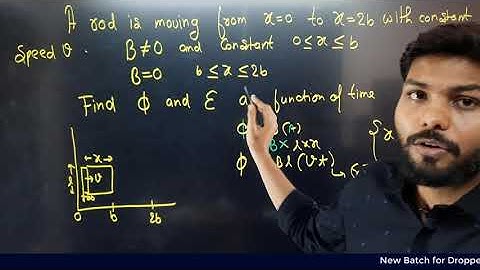 A rod is moving from x=0 to x=2b with constant
Speed v. B≠0 and constant 0≤x≤b
B=0 b≤x≤2b
Find ϕ and ε as function of time
(t)
B × l × x
ϕ Bl(vt)
x
v
0 b 2b
New Batch for Droppe